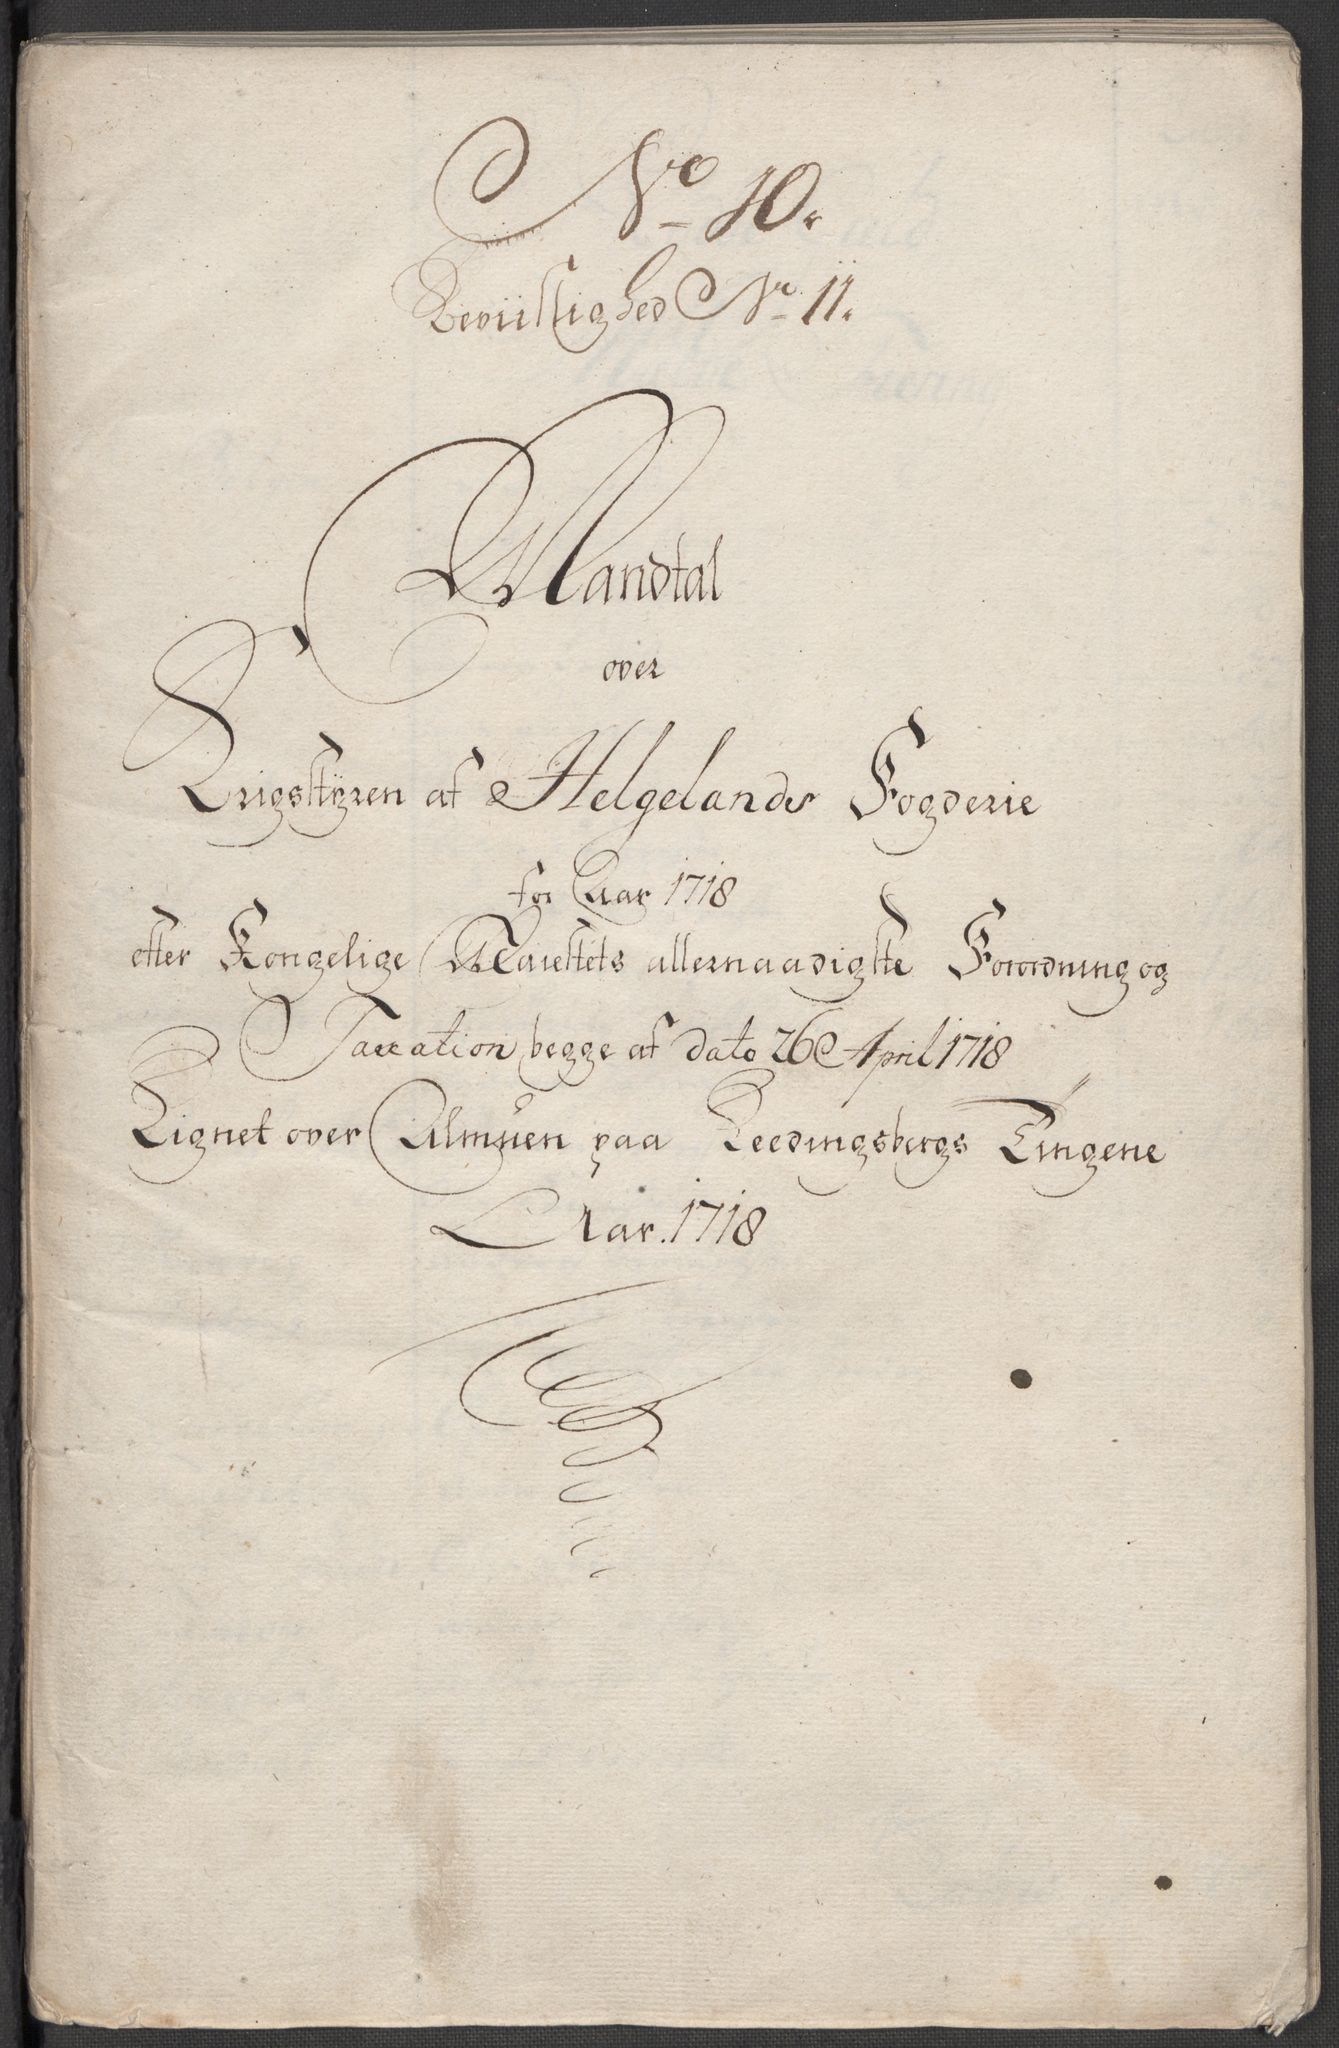 No 10.
Beviistighed No 11.
Mandtal
over
Krigsstyren af Helgelands Fogderie
for Aar 1718
efter Kongelige Mayestets allernaadigste Forordning og
Taxation begge af dato 26 April 1718
Lignet over Almuen paa Leedingsbergs Tingene
Aar. 1718